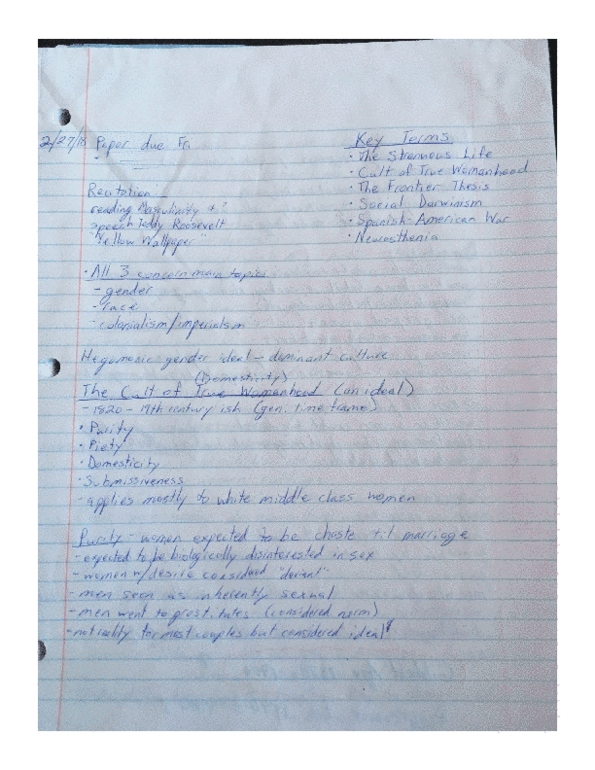 2/27/18 Paper due Fri.
Key Terms
• The Strenuous Life
• Cult of True Womanhood
• The Frontier Thesis
• Social Darwinism
• Spanish-American War
• Neurasthenia
Recitation
reading Masculinity + ?
speech Teddy Roosevelt
"Yellow Wallpaper"
• All 3 concern main topics
- gender
- race
- colonialism/imperialism
Hegemonic gender ideal - dominant culture
(Domesticity)
The Cult of True Womanhood (an ideal)
- 1820 - 19th century ish (gen. time frame)
• Purity
• Piety
• Domesticity
• Submissiveness
- applies mostly to white middle class women
Purity - women expected to be chaste til marriage
- expected to be biologically disinterested in sex
- women w/desire considered "deviant"
- men seen as inherently sexual
- men went to prostitutes (considered norm)
- not reality for most couples but considered ideal